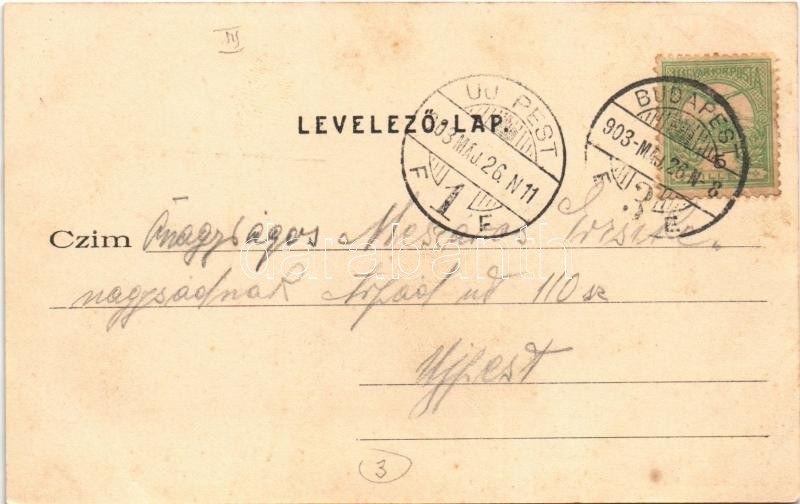 MAGYAR KIR. POSTA
BUDAPEST
903-MÁJ.26.N-8
3
F E
UJ PEST
903 MÁJ.26.N 11
F 1 E
LEVELEZŐ-LAP.
Czim Őnagyságos Mészáros
nagysádnak Árpád ud 110 sz
Ujpest
3
darabanth